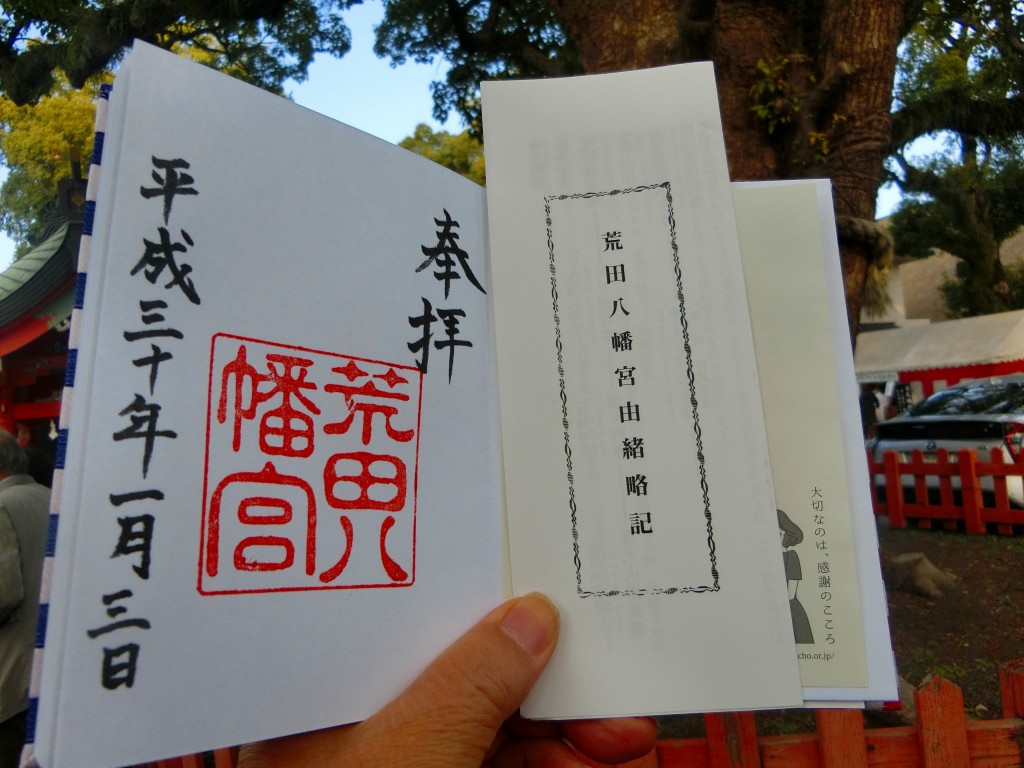 奉拝
荒田八
幡宮
平成三十年一月三日
荒田八幡宮由緒略記
大切なのは、感謝のこころ
cho.or.jp/